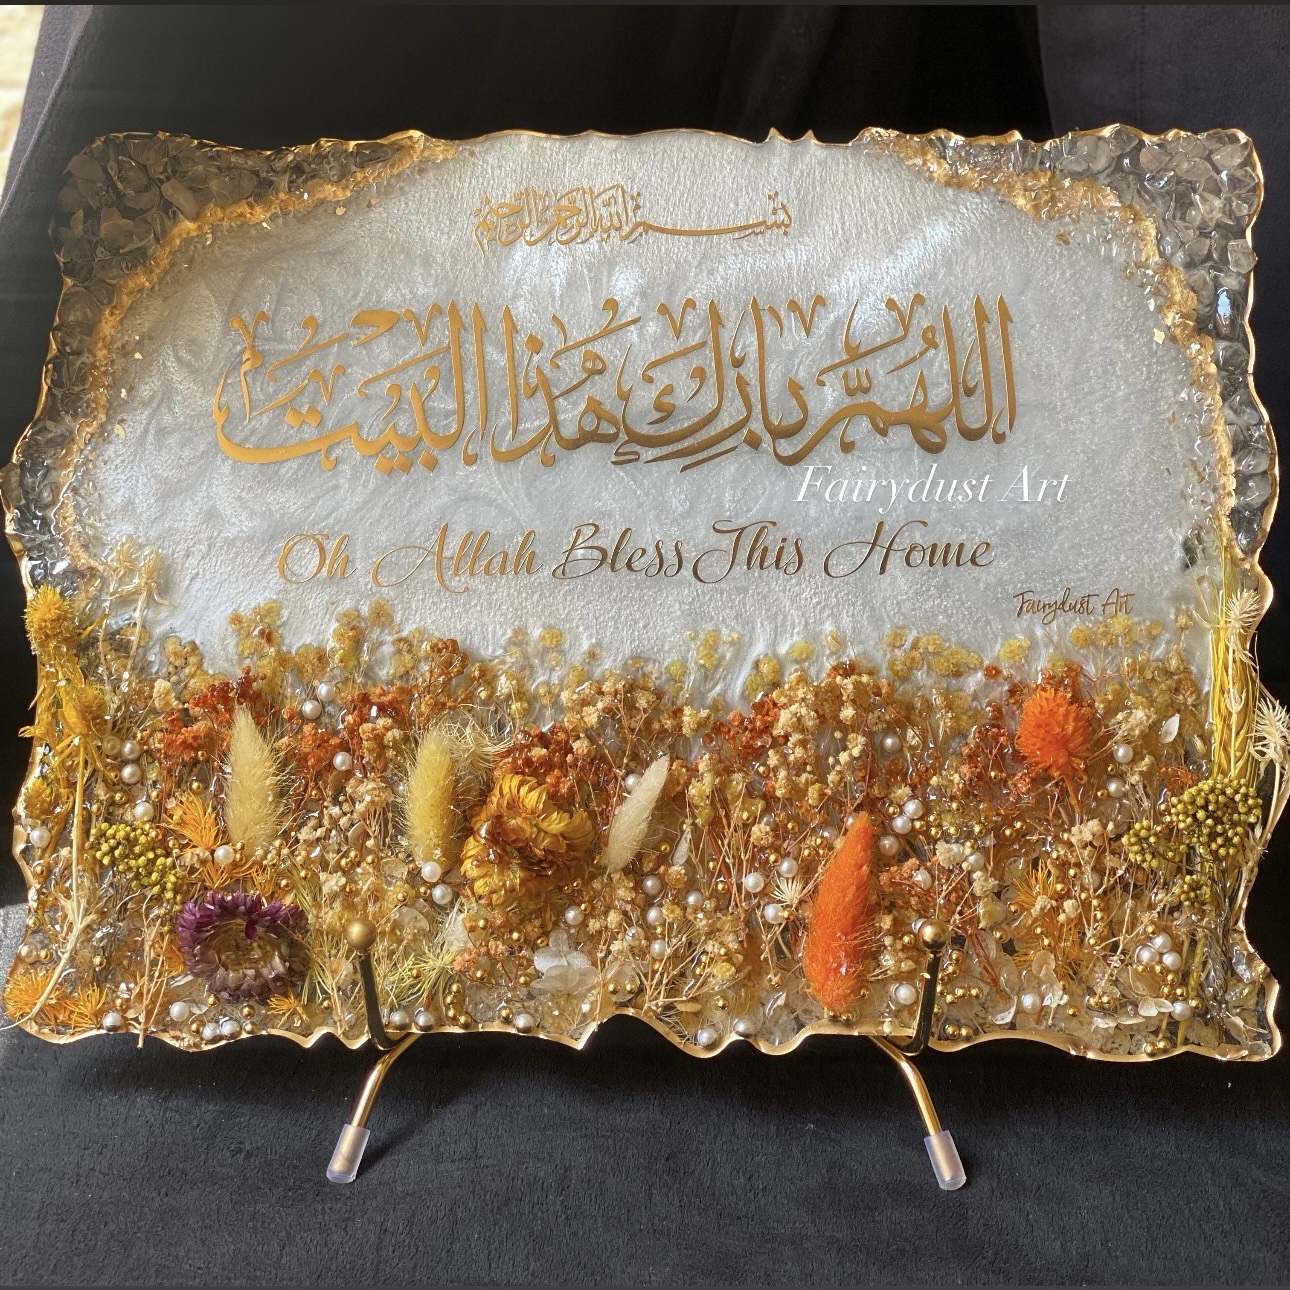 بسم الله الرحمن الرحيم
اللهم بارك هذا البيت
Fairydust Art
Oh Allah Bless This Home
Fairydust Art